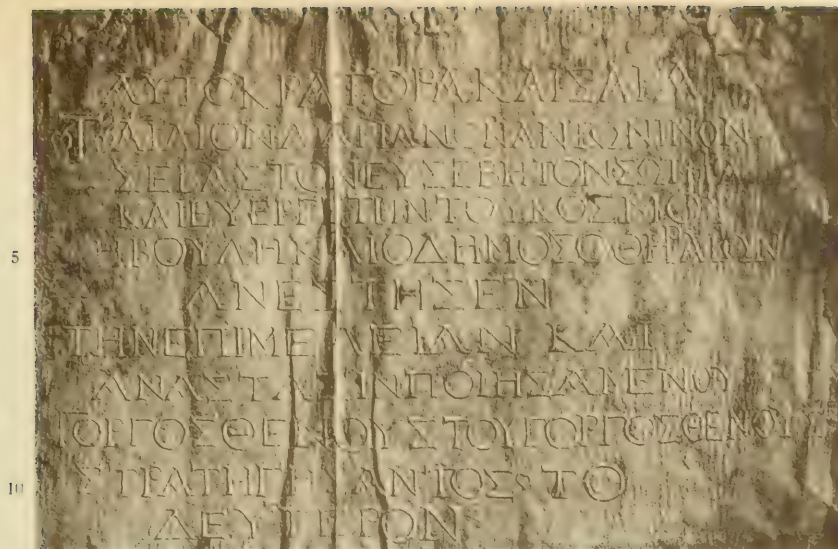 ΑΥΤΟΚΡΑΤΟΡΑΚΑΙΣΑΡΑ
ΤΑΙΛΙΟΝΑΔΡΙΑΝΟΝΑΝΤΩΝΙΝΟΝ
ΣΕΒΑΣΤΟΝΕΥΣΕΒΗΤΟΝΣΩΤΗΡΑ
ΚΑΙΕΥΕΡΓΕΤΗΝΤΟΥΚΟΣΜΟΥ
5 ΗΒΟΥΛΗΚΑΙΟΔΗΜΟΣΟΘΗΡΑΙΩΝ
ΑΝΕΣΤΗΣΕΝ
ΤΗΝΕΠΙΜΕΛΕΙΑΝ ΚΑΙ
ΑΝΑΣΤΑΣΙΝΠΟΙΗΣΑΜΕΝΟΥ
ΓΟΡΓΟΣΘΕΝΟΥΣΤΟΥΓΟΡΓΟΣΘΕΝΟΥΣ
10 ΣΤΡΑΤΗΓΗΣΑΝΤΟΣ ΤΟ
ΔΕΥΤΕΡΟΝ